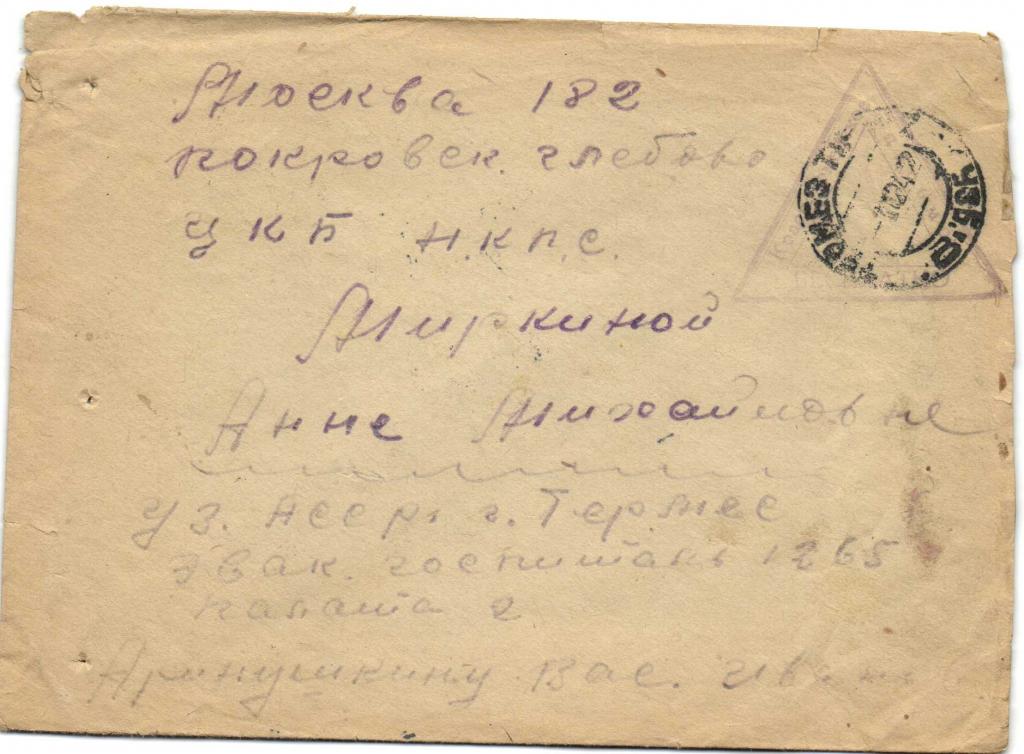 Москва 182
покровск. глебово
ЦКБ Н.К.П.С.
Миркиной
Анне Михайловне
Уз. ССР. г. Термез
Эвак. госпиталь 1265
палата 2
Аринушкину Вас.